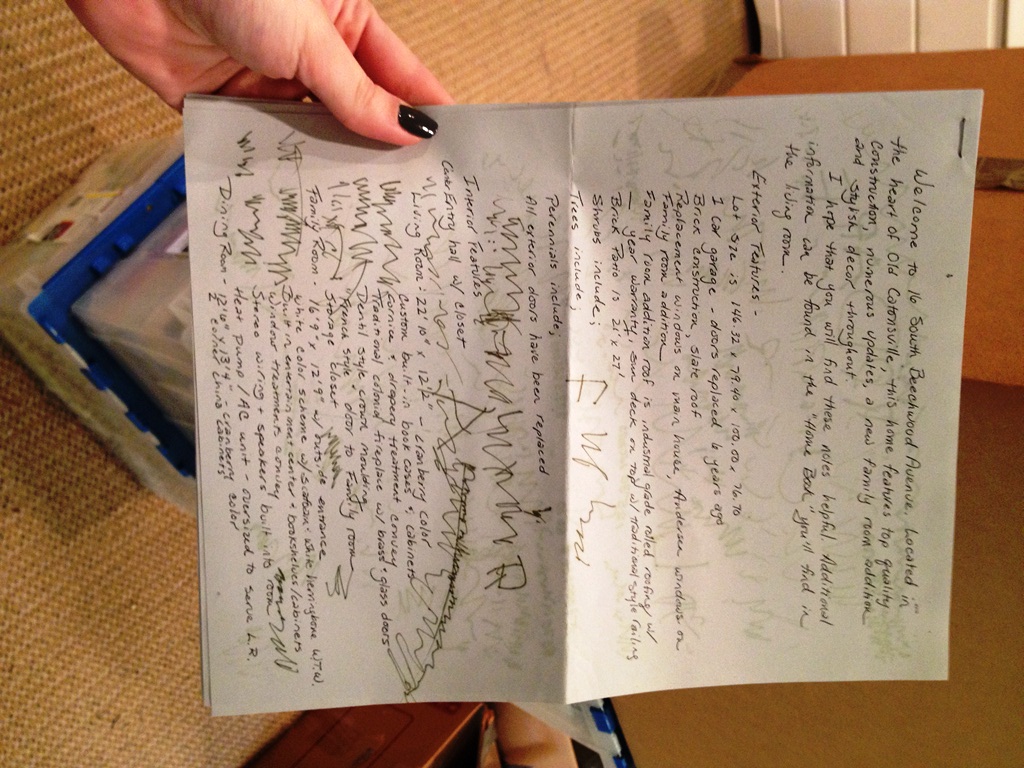 Welcome to 16 South Beechwood Avenue. Located in
the heart of Old Catonsville, this home features top quality
construction, numerous updates, a new family room addition
and stylish decor throughout.
I hope that you will find these notes helpful. Additional
information can be found in the "Home Book" you'll find in
the living room.
Exterior Features -
Lot size is 146.32 x 79.40 x 100.00 x 76.70
1 Car garage - doors replaced 4 years ago
Brick construction, slate roof
Replacement windows on main house, Andersen windows on
Family room addition
Family room addition roof is industrial grade rolled roofing w/
year warranty, sun deck on top w/ traditional style railing
Brick Patio is 21' x 27'
Shrubs include;
Trees include;
Perennials include;
All exterior doors have been replaced
Interior Features
Entry hall w/ closet
Living Room: 22'10" x 12'2" - cranberry color
Custom built-in book cases & cabinets
Cornice & drapery treatment convey
Traditional colonial fireplace w/ brass & glass doors
Dentil style crown moulding
French style door to Family room
Storage closet
Family Room - 16'9" x 12'9" w/ outside entrance
White color scheme w/ Scotian White herringbone W.T.W.
Built in entertainment center & bookshelves/cabinets
Window treatments convey
Stereo wiring & speakers built into room
Heat pump / AC unit - oversized to serve L.R.
Dining Room - 12'10" x 13'4" - cranberry color
2 corner china cabinets